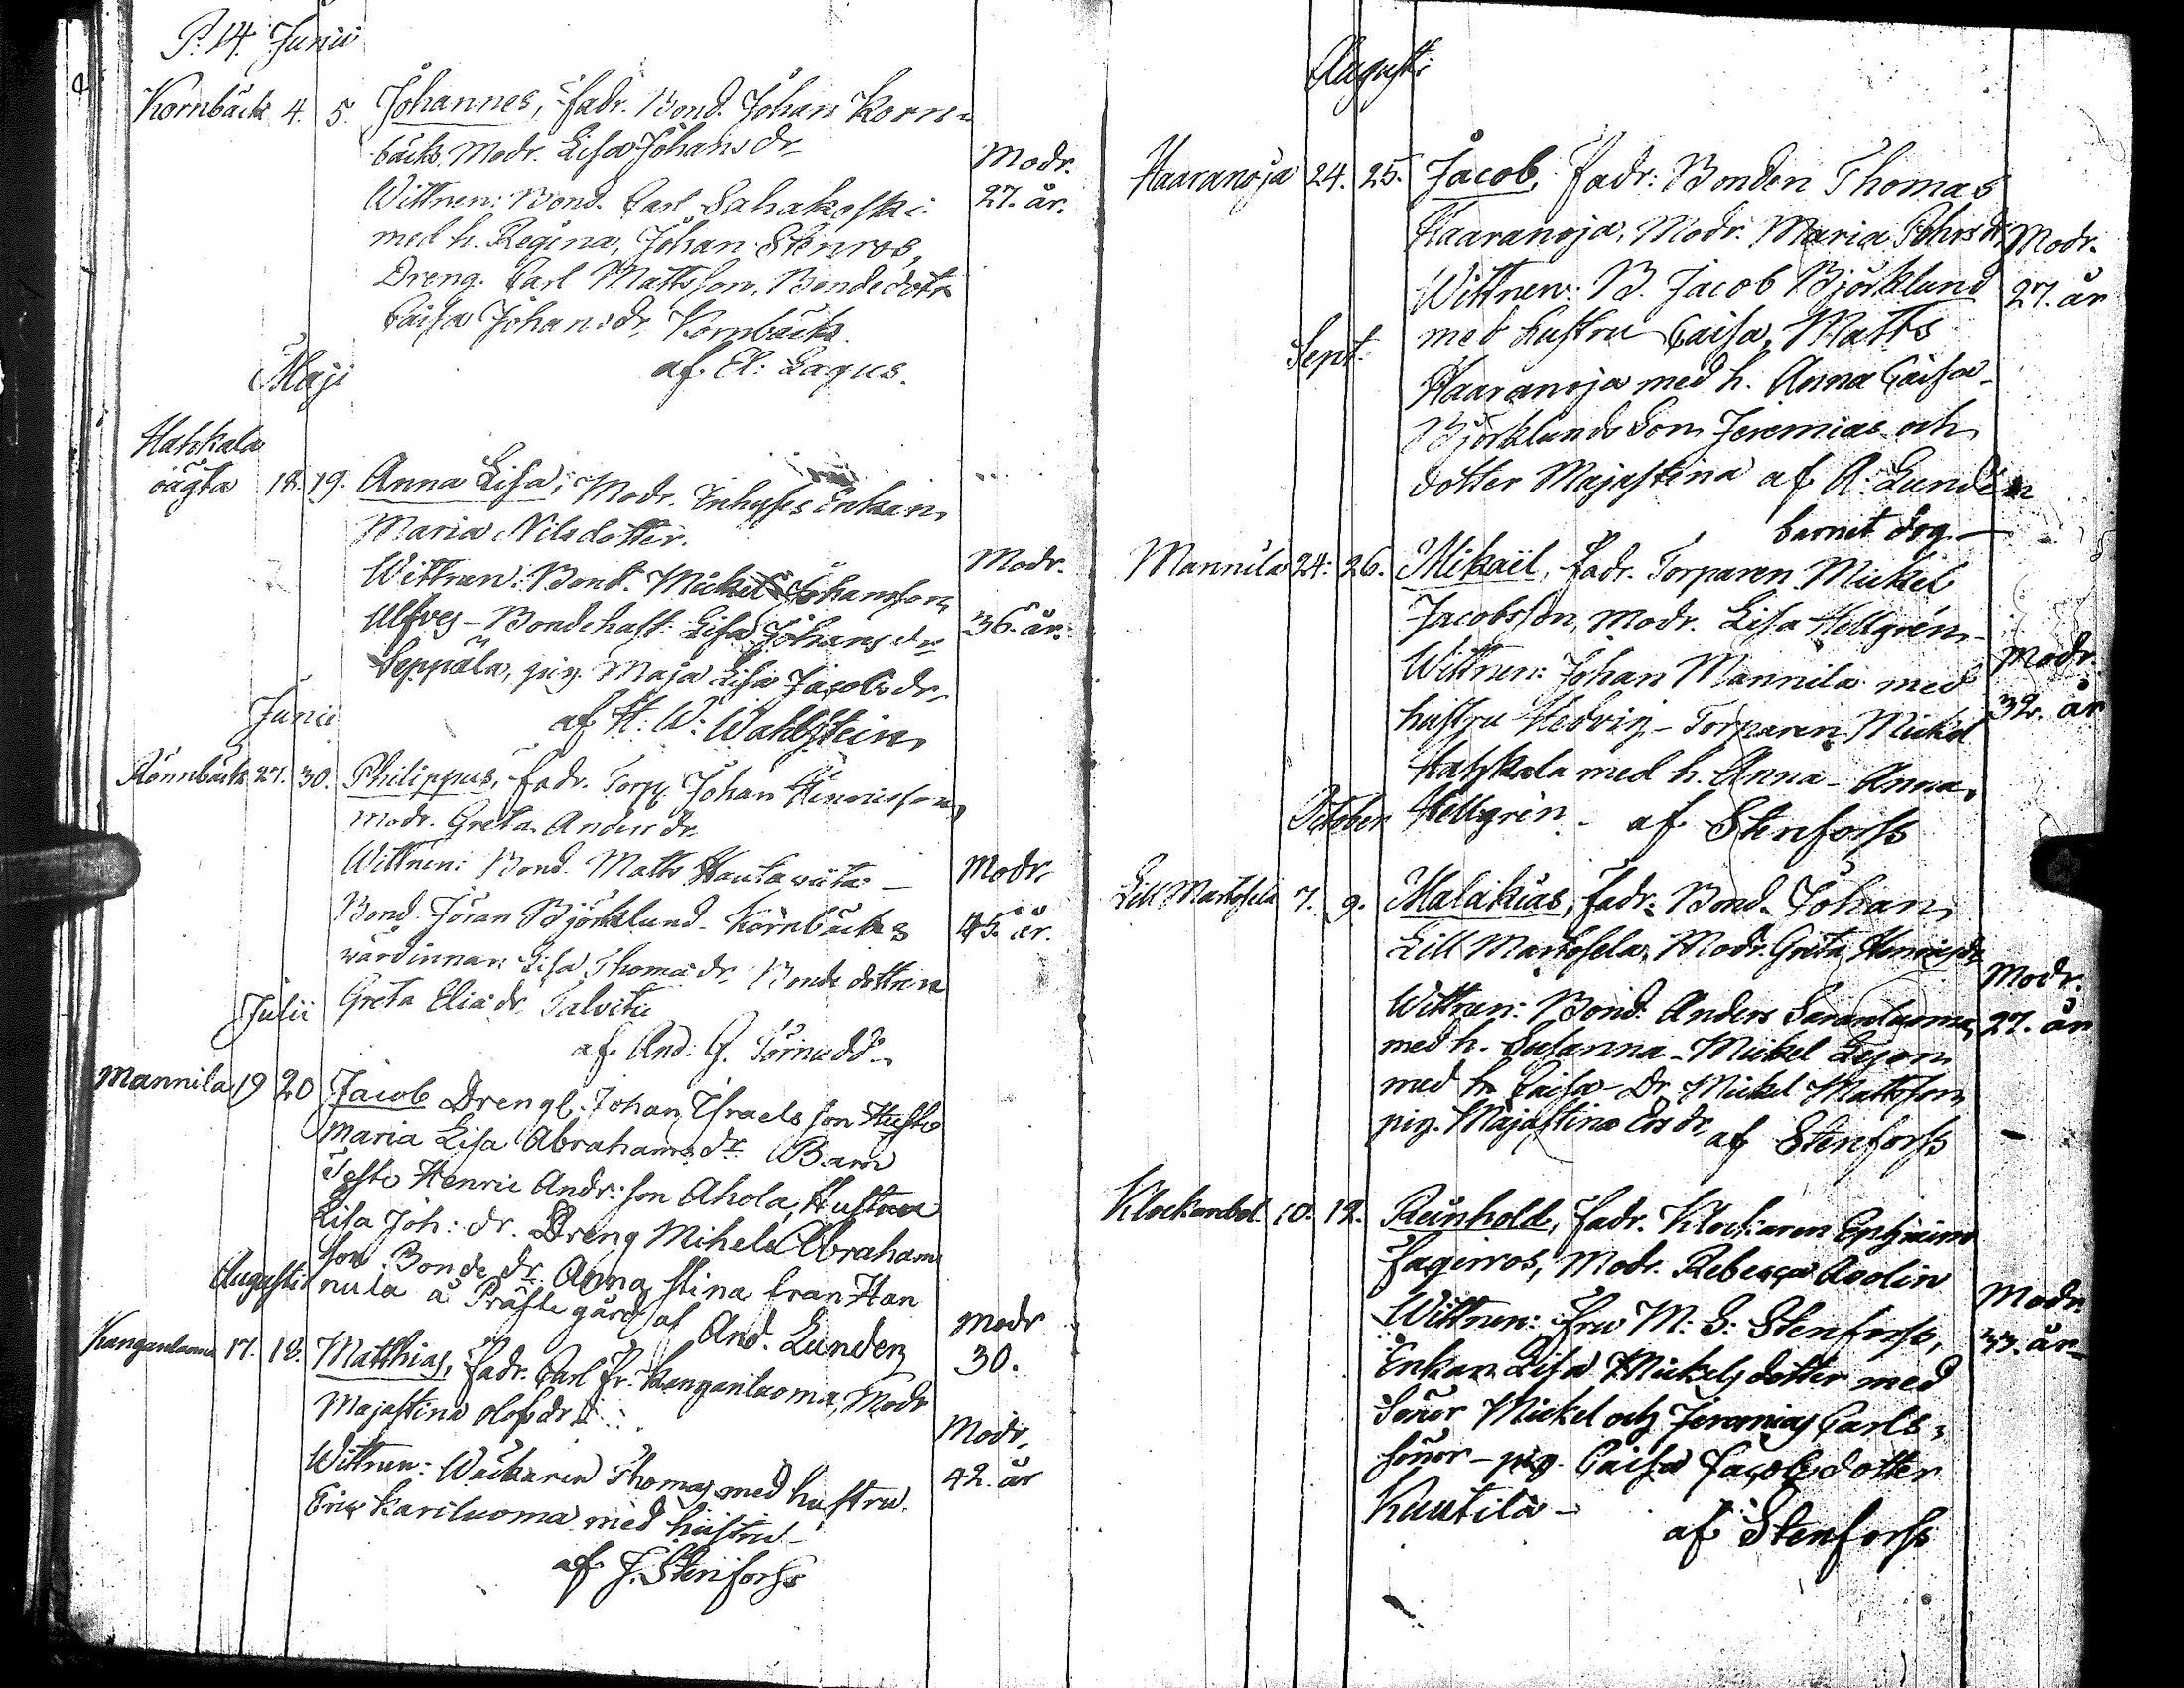 P. 14. Junii
Kornbäck 4. 5. Johannes, Fadr. Bond. Johan Korn=
bäck. Modr. Lisa Johansdr
Modr.
Wittnen: Bond. Carl Sahakoski
27. år.
med h. Regina, Johan Stenros,
Dreng. Carl Mattsson, Bondedotr
Caisa Johansdr, Kornbäck.
af El: Lagus.
Maji
Hahkala
oägta 18. 19. Anna Lisa, Modr. Inhyses Enkan
Maria Nilsdotter.
Wittnen: Bond. Mickel Johansson
Modr.
Ulfves - Bondehust: Lisa Johansdr
36. år.
Seppälä, pig. Maja Lisa Jacobsdr
af H: W: Wahlstein
Junii
Rönnbäck 27. 30. Philippus, Fadr. Torp. Johan Henricsson,
modr. Greta Andersdr
Wittnen: Bond. Matts Hautaviita -
Modr.
Bond. Jöran Björklund - Kornbäcks
45. år.
värdinnan Lisa Thomasdr Bonde dottren
Greta Eliasdr Talvitie
af And: G. Törnudd
Julii
Mannila 19 20 Jacob Drengl. Johan Israels son Hust.
Maria Lisa Abrahamsdr Barn
Test. Henric Andr: son Ahola, Hustrun
Lisa Joh: dr. Dreng Mihel Abraham
son Bonde dr Anna Stina från Han
nula å Prästegård af And. Lunden
Modr
30.
Augusti
Kanganluoma 17. 18. Matthias, Fadr. Carl Fr. Kanganluoma, Modr
Majastina Olofsdr
Modr.
Wittnen: Wäckaren Thomas med hustru
42. år
Eric Kariluoma med hustru -
af J. Stenforss
Augusti
Haaranoja 24. 25. Jacob, Fadr: Bonden Thomas
Haaranoja, Modr. Maria Johsdr
Modr.
Wittnen: B. Jacob Björklund
27. år
med hustru Caisa, Matts
Sept.
Haaranoja med h. Anna Caisa -
Björklunds Son Jeremias och
dotter Majastina af A: Lundén
barnet dog -
Mannila 24. 26. Mikaël, Fadr. Torparen Mickel
Jacobsson, Modr. Lisa Hellgrén -
Modr.
Wittnen: Johan Mannila med
32. år
hustru Hedvig - Torparen Mickel
Hahkala med h. Anna - Anna
October Hellgrén - af Stenforss
Lill Martosela 7. 9. Malakias, Fadr. Bond. Johan
Lill Martosela, Modr. Greta Henricsdr
Modr.
Wittnen: Bond. Anders Saranluoma
27. år
med h. Susanna - Mickel Lejon
med h. Caisa - Dr. Mickel Mattsson
pig. Majastina Ersdr af Stenforss
Klockarebol. 10. 12. Reinhold, Fadr. Klockaren Ephraim
Fagerros, Modr. Rebecca Avolin
Modr.
Wittnen: Fru M: S: Stenforss,
33. år -
Enkan Lisa Mickelsdotter med
Söner Mickel och Jeremias Carls=
söner - pig. Caisa Jacobsdotter
Kuutila -
af Stenforss